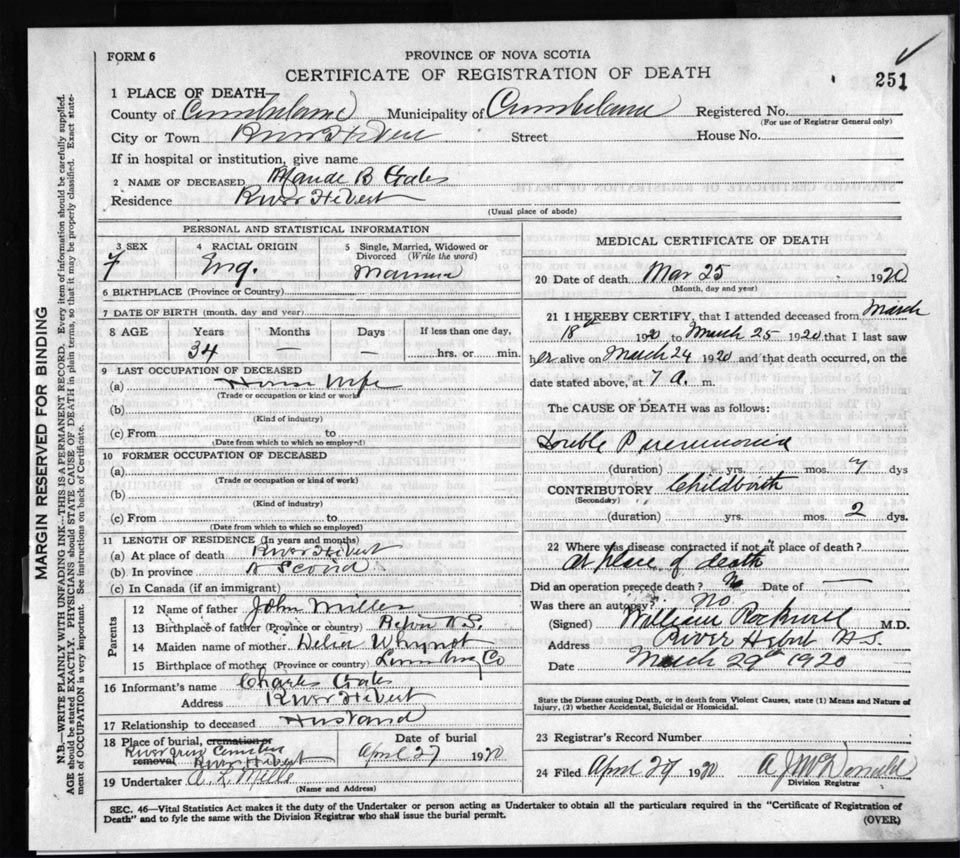 FORM 6
PROVINCE OF NOVA SCOTIA
CERTIFICATE OF REGISTRATION OF DEATH
251
MARGIN RESERVED FOR BINDING
N.B.—WRITE PLAINLY WITH UNFADING INK—THIS IS A PERMANENT RECORD. Every item of information should be carefully supplied.
AGE should be stated EXACTLY. PHYSICIANS should STATE CAUSE OF DEATH in plain terms, so that it may be properly classified. Exact state-
ment of OCCUPATION is very important. See instructions on back of Certificate.
1 PLACE OF DEATH
County of Cumberland Municipality of Cumberland Registered No.
(For use of Registrar General only)
City or Town River Hebert Street House No.
If in hospital or institution, give name
2 NAME OF DECEASED Maude B
Residence River Hebert
(Usual place of abode)
PERSONAL AND STATISTICAL INFORMATION
3 SEX 4 RACIAL ORIGIN 5 Single, Married, Widowed or
Divorced (Write the word)
F Eng. Married
6 BIRTHPLACE (Province or Country)
7 DATE OF BIRTH (month, day and year)
8 AGE Years Months Days If less than one day,
34 — — hrs. or min.
9 LAST OCCUPATION OF DECEASED
(a) House Wife
(Trade or occupation or kind or work)
(b)
(Kind of industry)
(c) From to
(Date from which to which so employed)
10 FORMER OCCUPATION OF DECEASED
(a)
(Trade or occupation or kind of work)
(b)
(Kind of industry)
(c) From to
(Date from which to which so employed)
11 LENGTH OF RESIDENCE (In years and months)
(a) At place of death River Hebert
(b) In province N Scotia
(c) In Canada (if an immigrant)
Parents
12 Name of father John Miller
13 Birthplace of father (Province or country) N.S.
14 Maiden name of mother Delia Whynot
15 Birthplace of mother (Province or country) Lunenburg Co
16 Informant's name Charles
Address River Hebert
17 Relationship to deceased Husband
18 Place of burial, cremation or removal Date of burial
River Cemetery
River Hebert April 27 1920
19 Undertaker A. L. Mills
(Name and Address)
MEDICAL CERTIFICATE OF DEATH
20 Date of death Mar 25 1920
(Month, day and year)
21 I HEREBY CERTIFY, that I attended deceased from March
18th 1920 to March 25 1920 that I last saw
her alive on March 24 1920 and that death occurred, on the
date stated above, at 7 A. m.
The CAUSE OF DEATH was as follows:
Double Pneumonia
(duration) yrs. mos. 7 dys
CONTRIBUTORY Childbirth
(Secondary)
(duration) yrs. mos. 2 dys.
22 Where was disease contracted if not at place of death?
At place of death
Did an operation precede death? No Date of —
Was there an autopsy? No
(Signed) William Rockwell M.D.
Address River Hebert N.S.
Date March 29th 1920
State the Disease causing Death, or in death from Violent Causes, state (1) Means and Nature of
Injury, (2) whether Accidental, Suicidal or Homicidal.
23 Registrar's Record Number
24 Filed April 29 1920 A J McDonald
Division Registrar
SEC. 46—Vital Statistics Act makes it the duty of the Undertaker or person acting as Undertaker to obtain all the particulars required in the "Certificate of Registration of
Death" and to fyle the same with the Division Registrar who shall issue the burial permit.
(OVER)